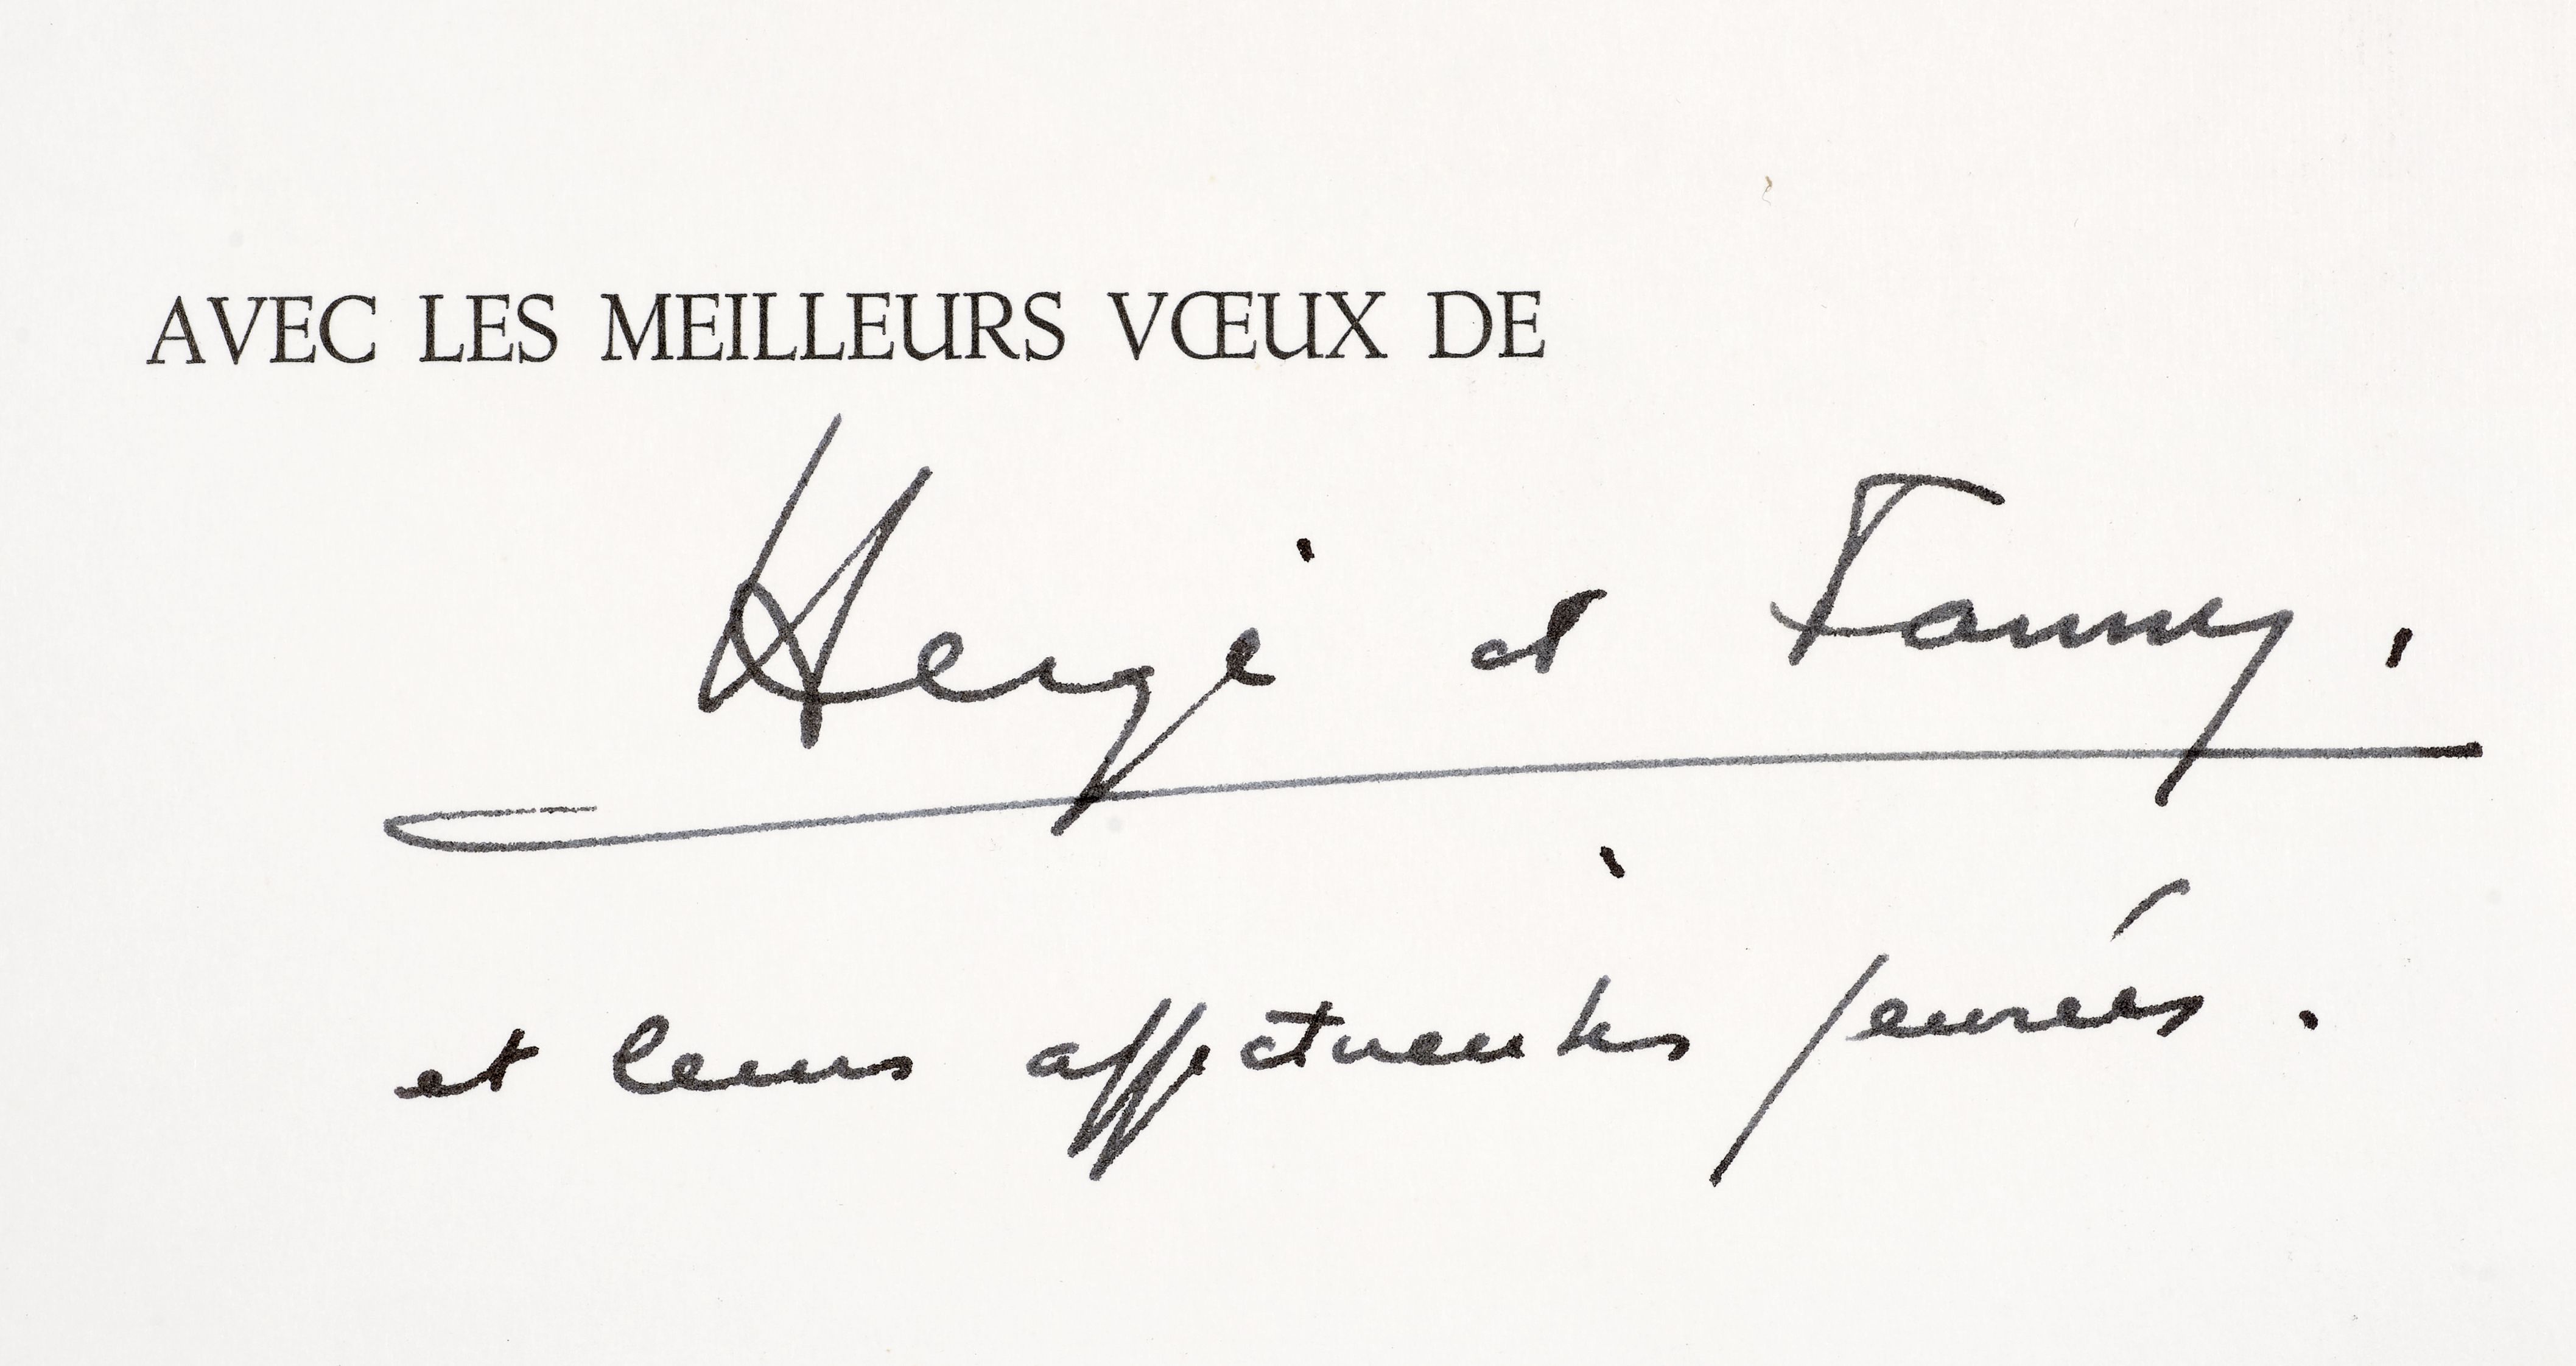 AVEC LES MEILLEURS VŒUX DE
Hergé et Fanny,
et leurs affectueuses pensées.